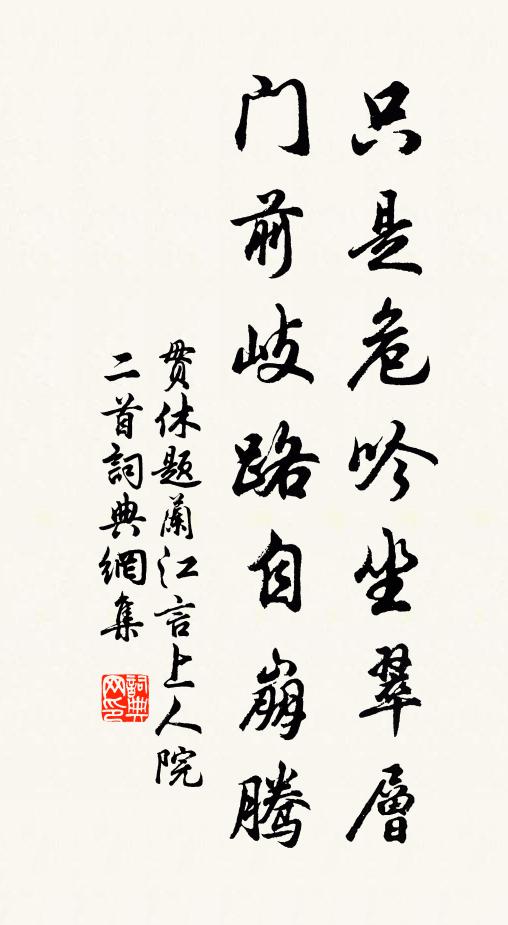 只是危吟坐翠層
门前岐路自崩腾
贯休题蘭江言上人院
二首詞典網集
詞典
网印